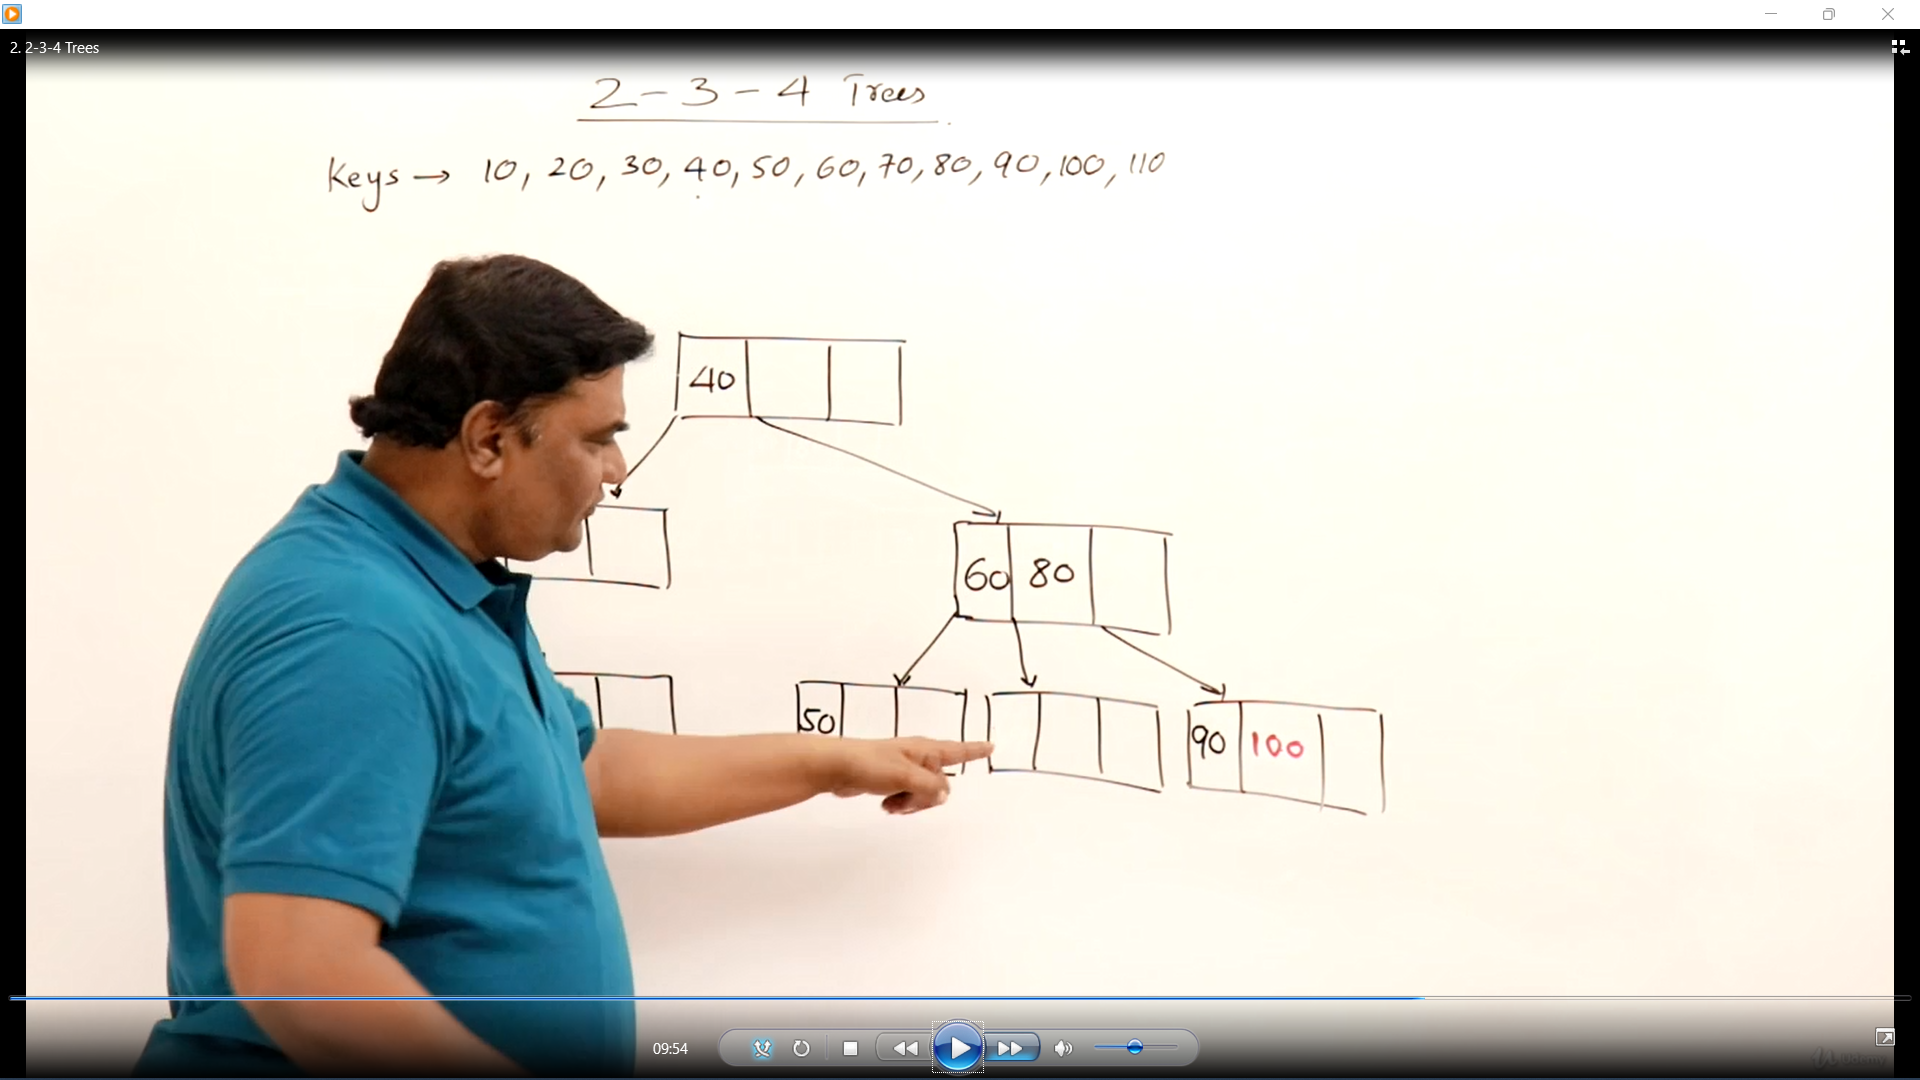 2. 2-3-4 Trees
2-3-4 Trees
Keys → 10, 20, 30, 40, 50, 60, 70, 80, 90, 100, 110
40
60 80
50
90 100
09:54
ûdemy